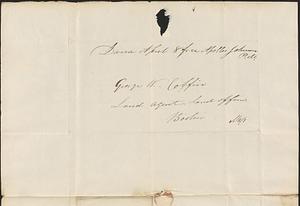 Dana April 8 free Apollos Johnson
George W. Coffin
Land agent land office
Boston